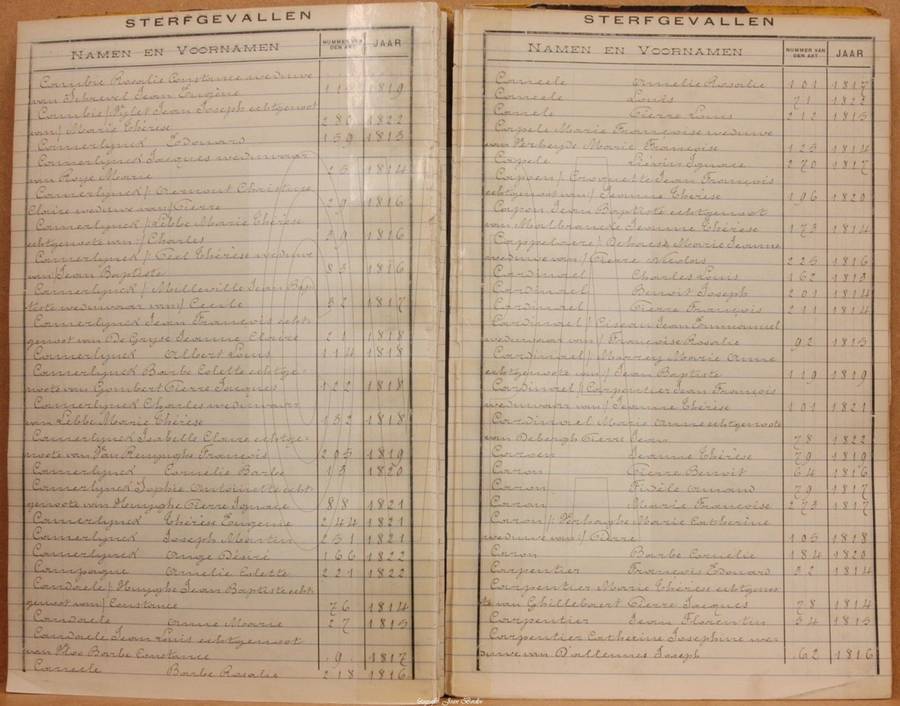 STERFGEVALLEN
NAMEN EN VOORNAMEN NUMMER VAN DEN AKT JAAR
Rosalie Constance weduwe 1819
van Jean Eugène
Jean Joseph echtgenoot 280 1822
van Marie Thérèse
Camerlynck Edouard 159 1813
Camerlynck Jacques weduwaar 25 1814
van Marie
Camerlynck / Clermont Christine
Claire weduwe van / Pierre 29 1816
Camerlynck / Lebbe Marie Thérèse
echtgenoote van / Charles 1816
Camerlynck / Geel Thérèse weduwe
van / Jean Baptiste 85 1816
Camerlynck / Melleville Jean Bap-
tiste weduwaar van / Cecile 52 1817
Camerlynck Jean François echt-
genoot van De Gryse Jeanne Claire 21 1818
Camerlynck Albert Louis 114 1818
Camerlynck Barbe Colette echtge-
noote van Gombert Pierre Jacques 122 1818
Camerlynck Charles weduwaar
van Lebbe Marie Thérèse 132 1818
Camerlynck Isabelle Claire echtge-
noote van François 205 1819
Camerlynck Cornelie Barbe 13 1820
Camerlynck Sophie Antoinette echt-
genoote van Pierre Ignace 88 1821
Camerlynck Thérèse Eugenie 244 1821
Camerlynck Joseph Martin 251 1821
Camerlynck Ange Désiré 166 1822
Campagne Amelie Colette 221 1822
Candaele / Jean Baptiste echt-
genoot van / Constance 76 1814
Candaele Anne Marie 27 1815
Candaele Jean Louis echtgenoot
van Barbe Constance 9 1817
Caneele Barbe Rosalie 218 1816
STERFGEVALLEN
NAMEN EN VOORNAMEN NUMMER VAN DEN AKT JAAR
Caneele Amelie Rosalie 101 1817
Caneele Louis 71 1822
Canele Pierre Louis 212 1815
Capele Marie Françoise weduwe
van Marie François 125 1814
Capele Liévin Ignace 270 1817
Capoen / Jean François
echtgenoot van / Jeanne Thérèse 196 1820
Capon Jean Baptiste echtgenoot
van Malbrancke Jeanne Thérèse 173 1814
Cappelaere / Marie Jeanne
weduwe van / Pierre Nicolas 225 1816
Cardinael Charles Louis 162 1813
Cardinael Benoit Joseph 201 1814
Cardinael Pierre François 211 1814
Cardinael / Jean Emmanuel
weduwaar van / Françoise Rosalie 92 1815
Cardinael / Marie Anne
echtgenoote van / Jean Baptiste 119 1819
Cardinael / Carpentier Jean François
weduwaar van / Jeanne Thérèse 101 1821
Cardinael Marie Anne echtgenoote
van Debergh Pierre Jean 78 1822
Caroen Jeanne Thérèse 79 1819
Caron Pierre Benoit 64 1816
Caron Fidèle Amand 79 1817
Caron Marie Françoise 273 1817
Caron / Verhaeghe Marie Catherine
weduwe van / Pierre 105 1818
Caron Barbe Cornelie 184 1820
Carpentier François Edouard 32 1814
Carpentier Marie Thérèse echtgenoo-
te van Ghillebaert Pierre Jacques 78 1814
Carpentier Jean Florentin 54 1815
Carpentier Catherine Josephine we-
duwe van D'allennes Joseph 62 1816